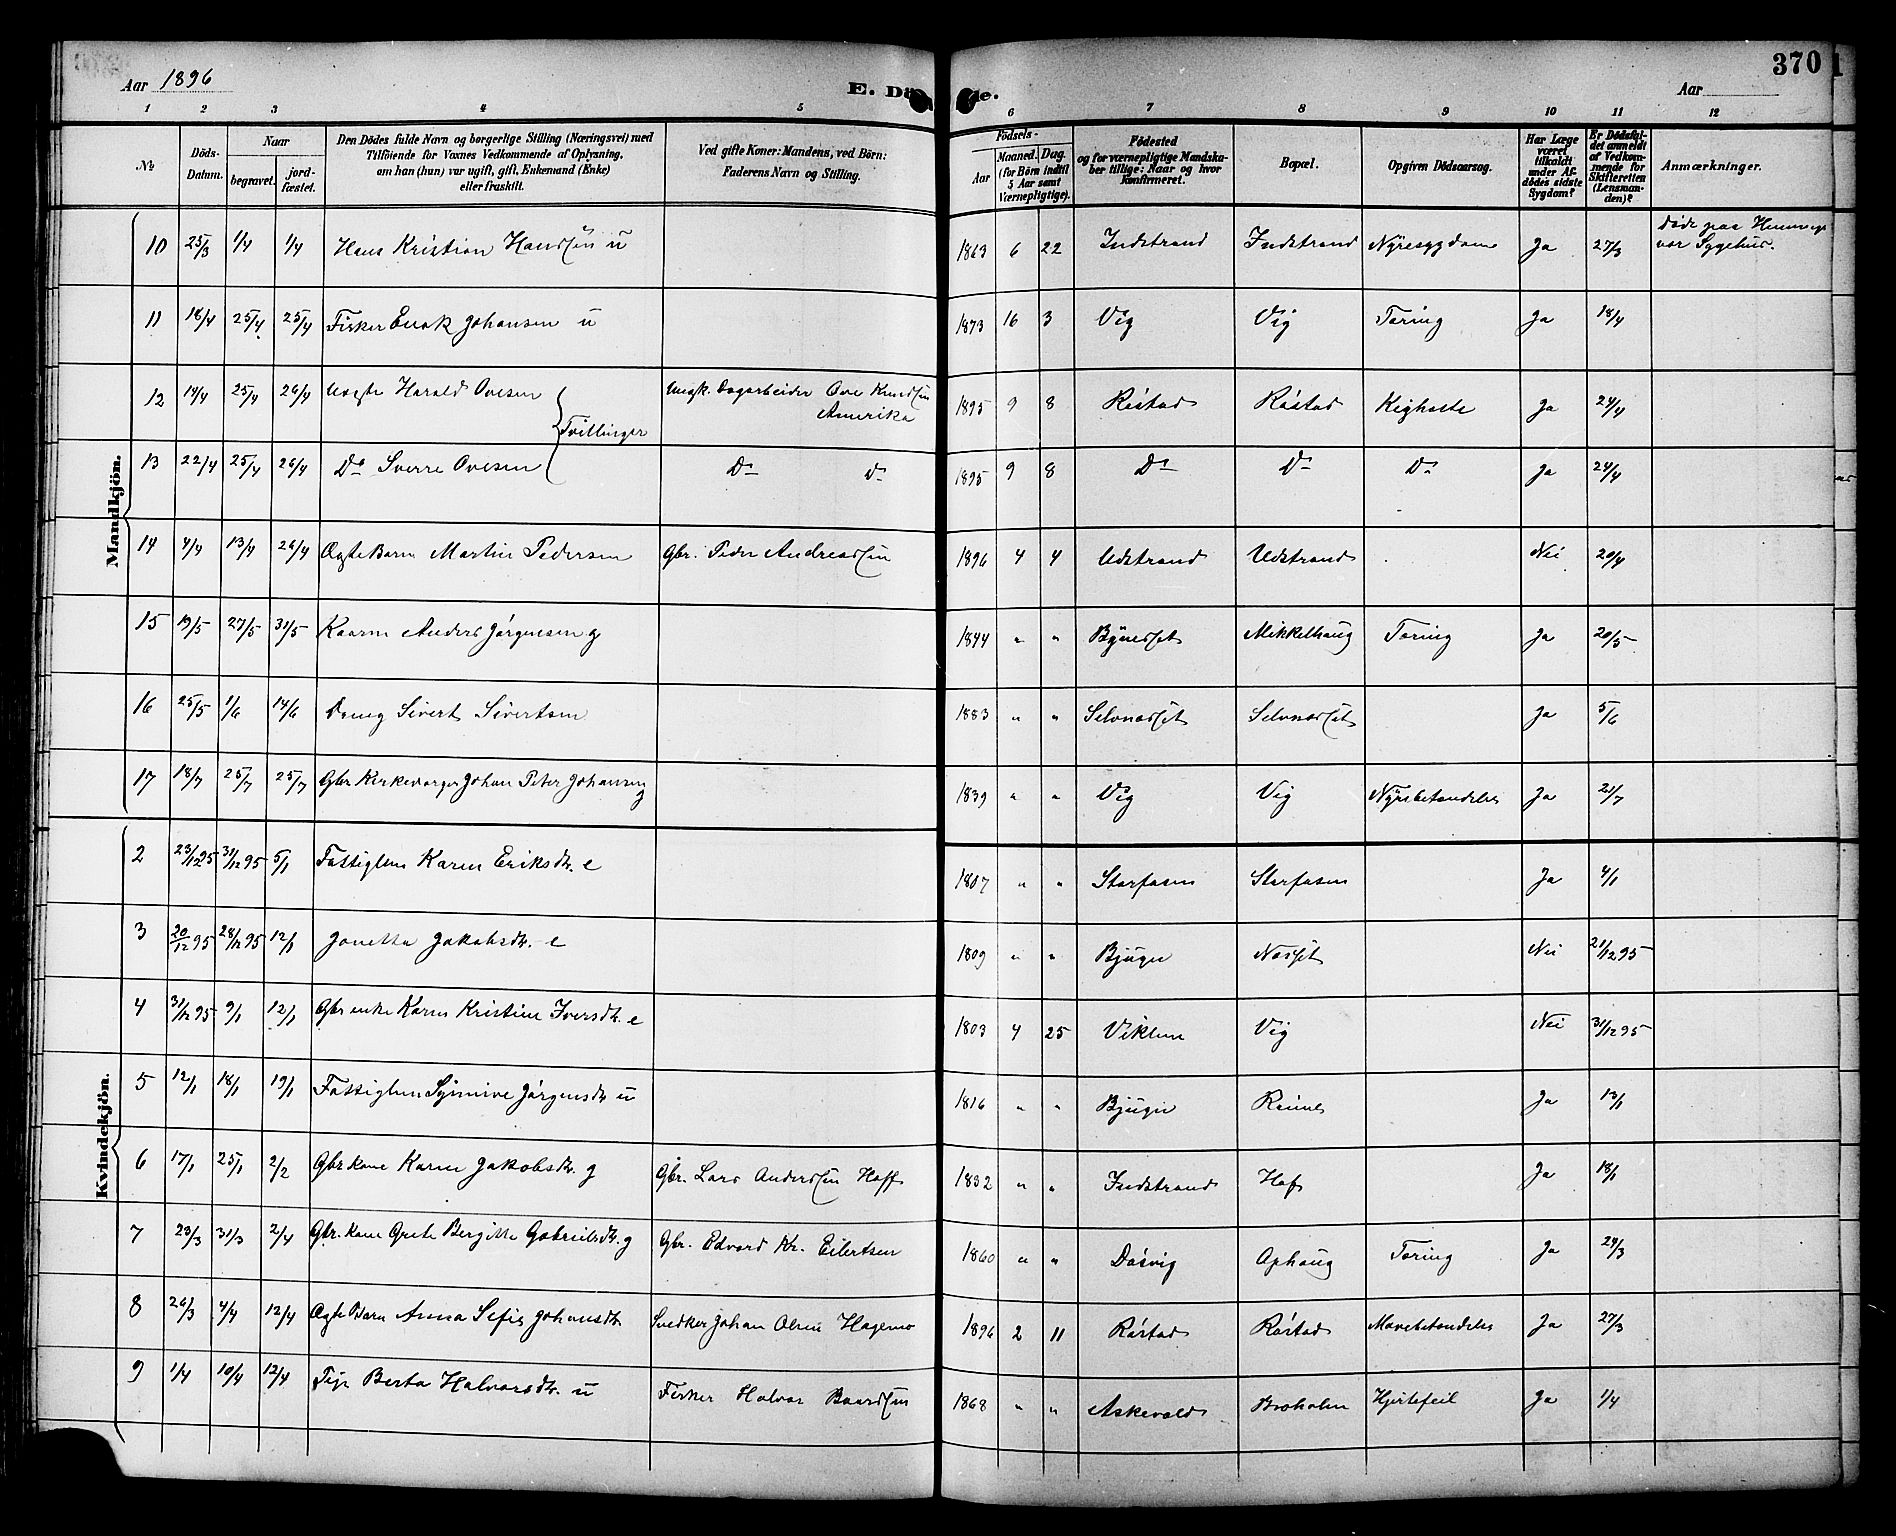 370
Aar 1896
E. Dö de.
Aar
1 2 3 4 5 6 7 8 9 10 11 12
№
Döds-Datum.
Naar begravet. jord-fæstet.
Den Dödes fulde Navn og borgerlige Stilling (Næringsvei) med Tilföiende for Voxnes Vedkommende af Oplysning, om han (hun) var ugift, gift, Enkemand (Enke) eller fraskilt.
Ved gifte Koner: Mandens, ved Börn: Faderens Navn og Stilling.
Födsels- Aar Maaned. Dag. (for Börn indtil 5 Aar samt Værnepligtige).
Födested og for værnepligtige Mandskaber tillige: Naar og hvor Konfirmeret.
Bopæl.
Opgiven Dödsaarsag.
Har Læge været tilkaldt under Afdödes sidste Sygdom?
Er Dödsfaldet anmeldt af Vedkommende for Skifteretten (Lensmanden)?
Anmærkninger.
Mandkjön.
10 25/3 1/4 1/4 Hans Kristian Handsen u 1863 6 22 Indstrand Indstrand Nyresygdom Ja 27/3 Döde paa Sygehus.
11 18/4 25/4 25/4 Fisker Enok Johansen u 1873 16 3 Vig Vig Tæring Ja 18/4
12 14/4 25/4 26/4 Uægte Harald Ovesen Tvillinger Ungk. Dagarbeider Ove Knudsen Amerika 1895 9 8 Röstad Röstad Kighoste Ja 24/4
13 22/4 25/4 26/4 Do Sverre Ovesen Do Do 1895 9 8 Do Do Do Ja 24/4
14 4/4 13/4 26/4 Ægte Barn Martin Pedersen Gbr. Peder Andreassen 1896 4 4 Udstrand Udstrand Nei 20/4
15 19/5 27/5 31/5 Kaarm Anders Jörgensen g 1844 " " Bynesset Mikkelhaug Tæring Ja 20/5
16 25/5 1/6 14/6 Dreng Sivert Sivertsen 1883 " " Selvnesset Selvnesset Ja 5/6
17 18/7 25/7 25/7 Gbr Kirkeværger Johan Peter Johansen g 1839 " " Vig Vig Nyrebetændelse Ja 21/7
Kvindekjön.
2 23/12 95 31/12 95 5/1 Fattiglem Karen Eriksdtr. e 1807 " " Storfosen Storfosen Ja 4/1
3 20/12 95 28/12 95 12/1 Jonetta Jakobsdtr. e 1809 " " Bjugn Nesset Nei 21/12 95
4 31/12 95 9/1 12/1 Gbr enke Karen Kristine Iversdtr. e 1803 4 25 Viklem Vig Nei 31/12 95
5 12/1 18/1 19/1 Fattiglem Synnive Jörgensdtr u 1816 " " Bjugn Ja 13/1
6 17/1 25/1 2/2 Gbr Kone Karen Jakobsdtr. g Gbr. Lars Anderssen Hoff 1832 " " Indstrand Hof Ja 18/1
7 23/3 31/3 2/4 Gbr. Kone Grete Bergitte Gabrielsdtr. g Gbr. Edvard Kr. Eilertsen 1860 " " Dösvig Ophaug Tæring Ja 24/3
8 26/3 4/4 12/4 Ægte Barn Anna Sefie Johansdtr Snedker Johan Olsen Hagemo 1896 2 11 Röstad Röstad Mavebetændelse Ja 27/3
9 1/4 10/4 12/4 Pige Berta Halvorsdtr. u Fisker Halvor Baardsen 1868 " " Askevold Broholm Hjertefeil Ja 1/4